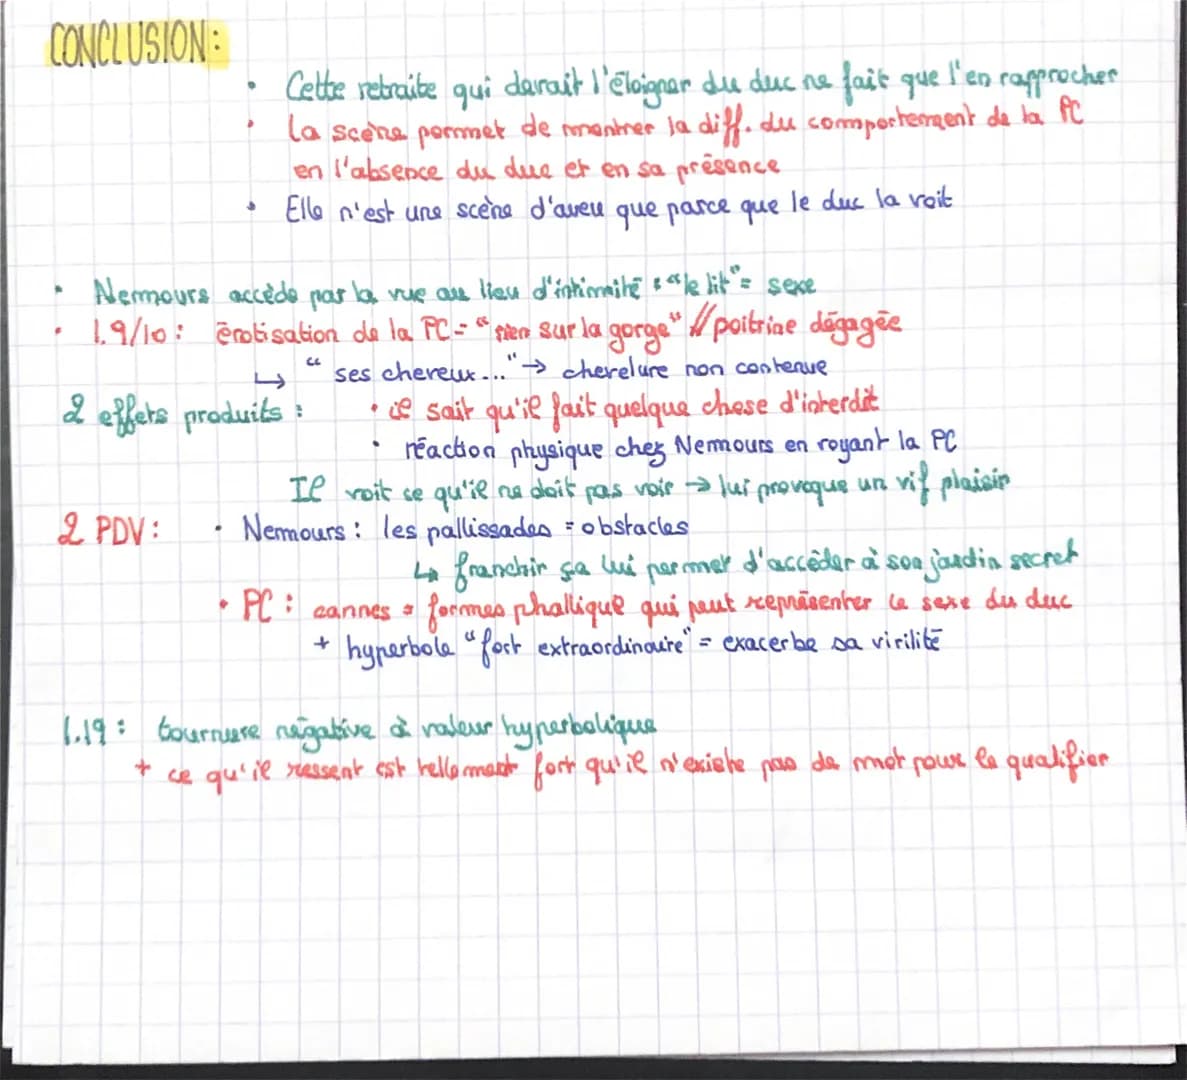 CONCLUSION:
• Cette retraite qui devait l'éloigner du duc ne fait que l'en rapprocher
• La scène permet de montrer la diff. du comportement de la PC
en l'absence du duc et en sa présence
• Elle n'est une scène d'aveu que parce que le duc la voit
• Nemours accède par la vue au lieu d'intimité : "le lit" = sexe
• l.9/10 : érotisation de la PC = "rien sur la gorge" // poitrine dégagée
↳ "ses cheveux..." → chevelure non contenue
2 effets produits : • il sait qu'il fait quelque chose d'interdit
• réaction physique chez Nemours en voyant la PC
Il voit ce qu'il ne doit pas voir → lui provoque un vif plaisir
2 PDV : • Nemours : les pallissades = obstacles
↳ franchir ça lui permet d'accéder à son jardin secret
• PC : cannes = formes phallique qui peut représenter le sexe du duc
+ hyperbole "fort extraordinaire" = exacerbe sa virilité
l.19 : tournure négative à valeur hyperbolique
+ ce qu'il ressent est tellement fort qu'il n'existe pas de mot pour le qualifier